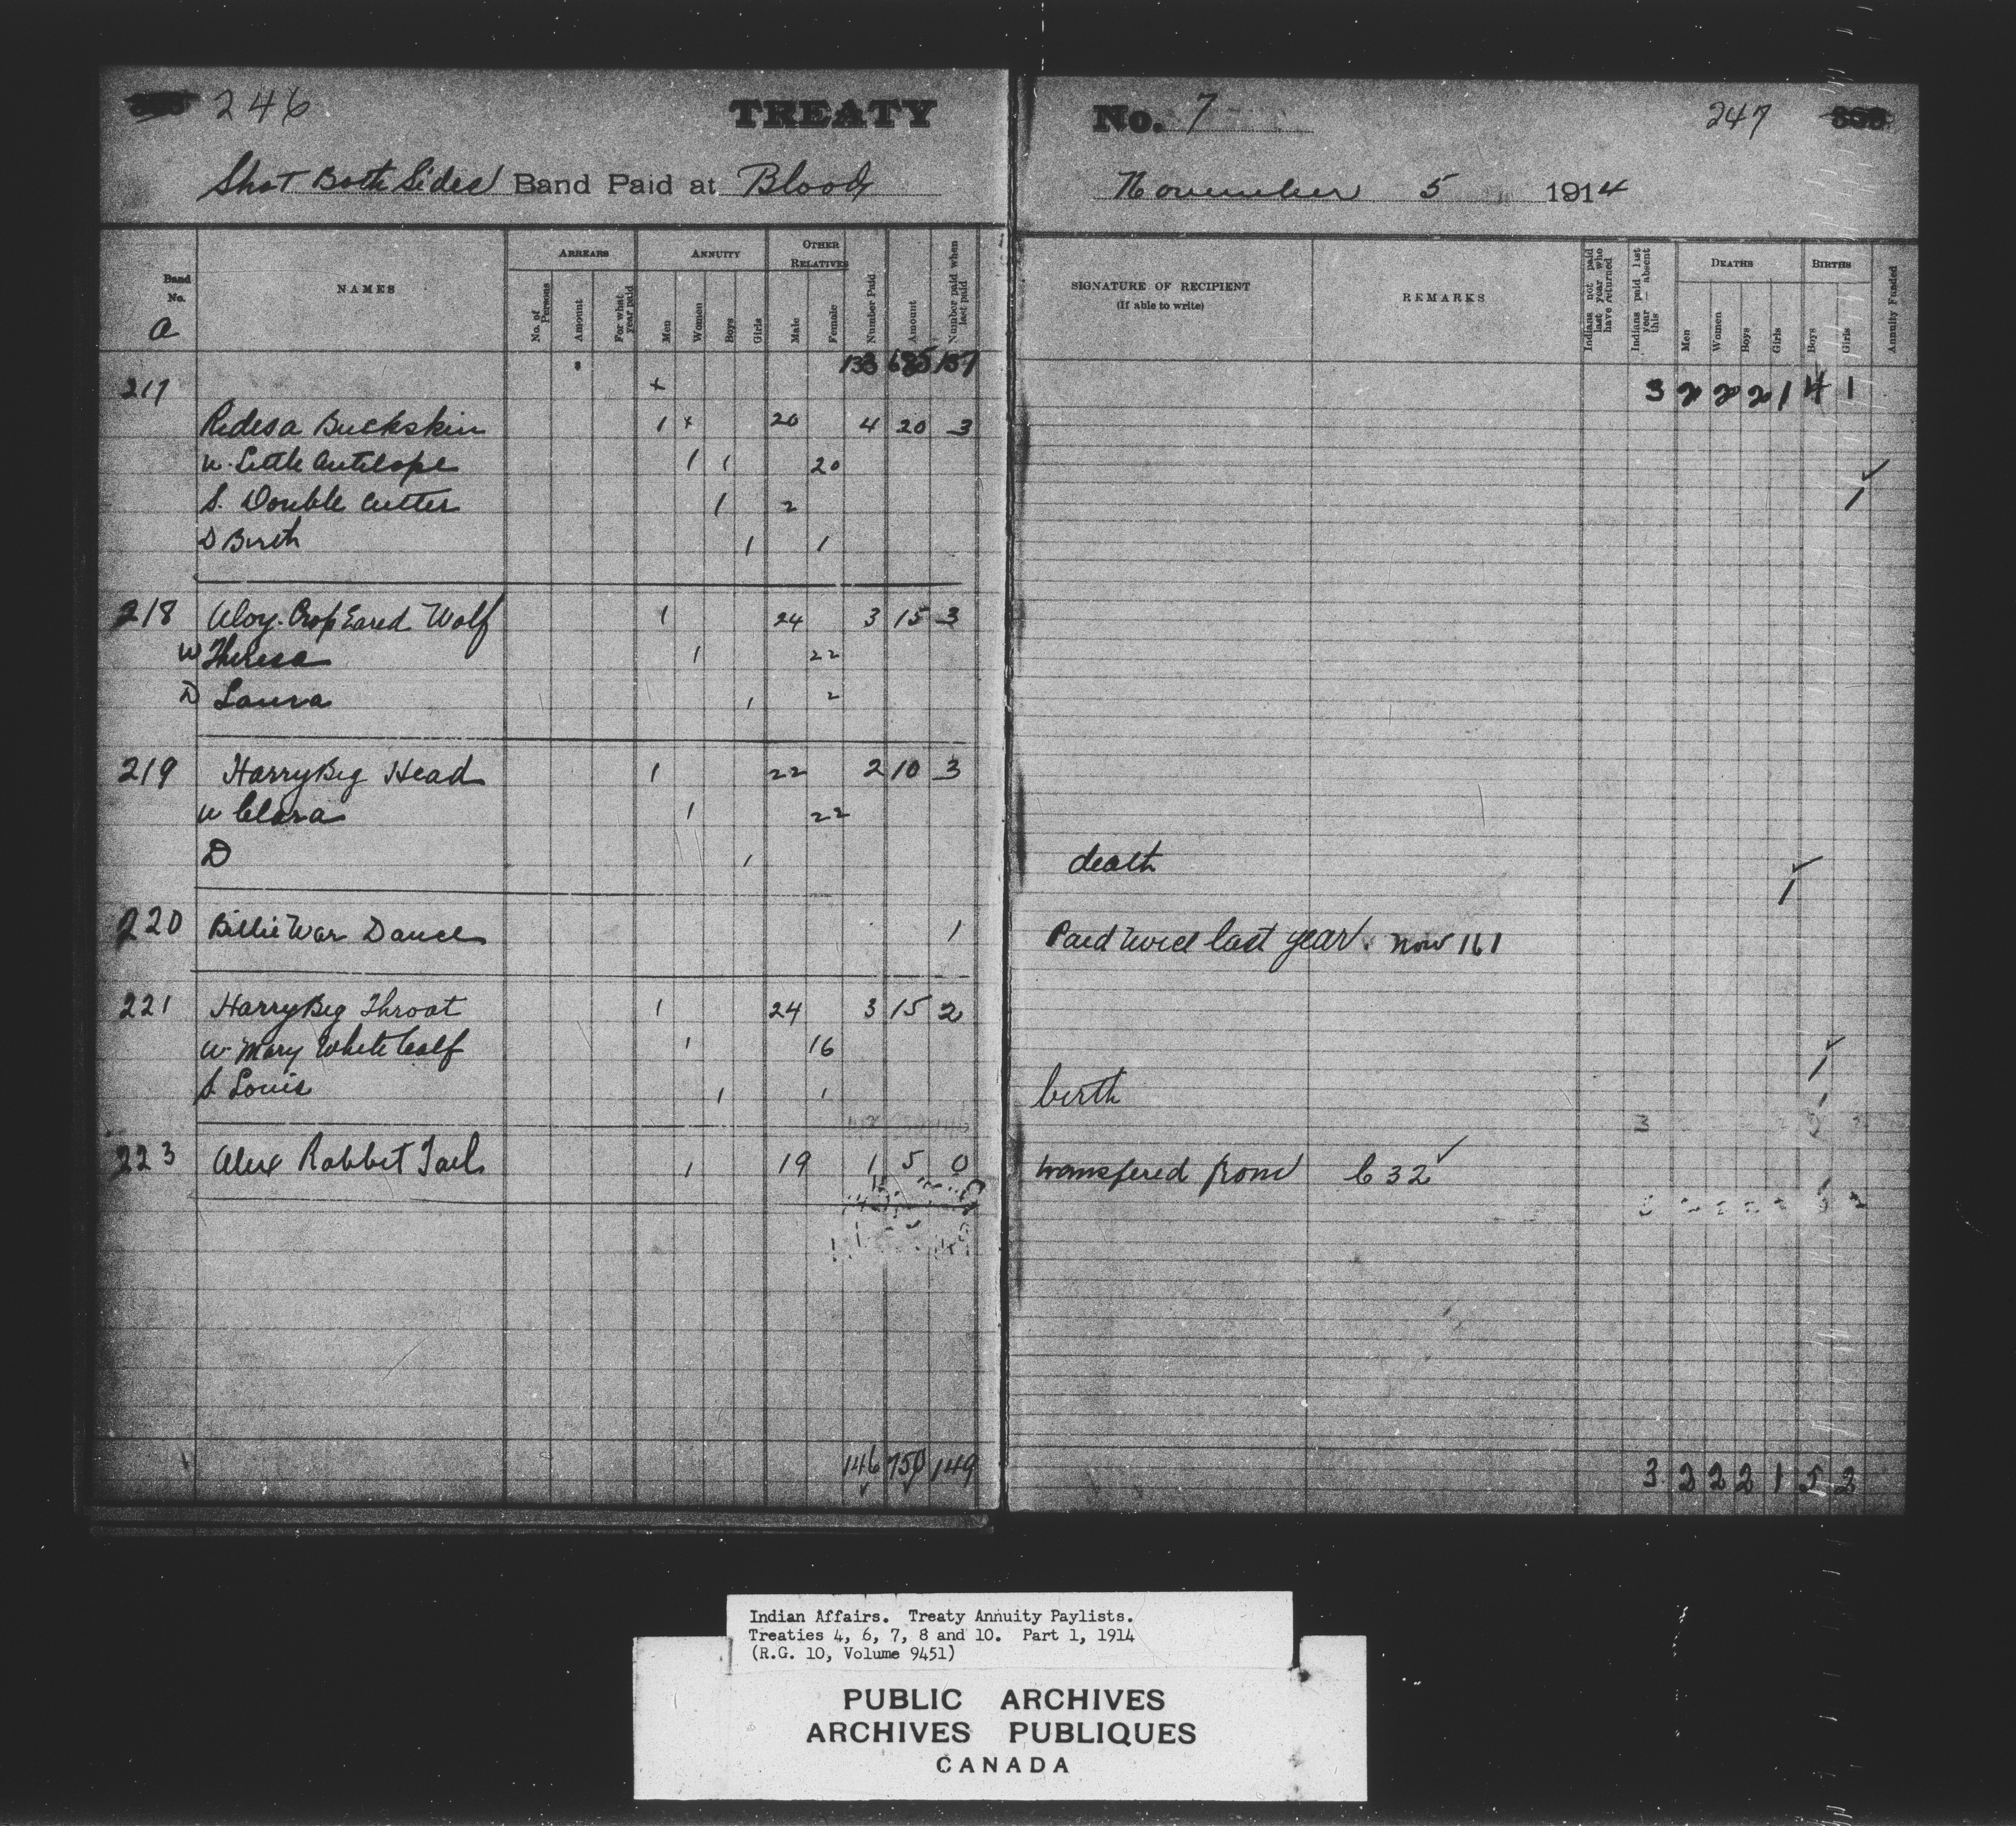 246 TREATY No. 7 247
Shot Both Sides Band Paid at Blood November 5 1914
Band No. NAMES ARREARS ANNUITY OTHER RELATIVES Number Paid Amount Number paid when last paid
No. of Persons Amount For what year paid Men Women Boys Girls Male Female
SIGNATURE OF RECIPIENT (If able to write) REMARKS Indians not paid last year who have returned Indians paid last year — absent this DEATHS BIRTHS Annuity Funded
Men Women Boys Girls Boys Girls
a
133 685 137
3 2 2 2 1 4 1
217 +
Rides a Buckskin 1 + 20 4 20 3
W. Little Antelope 1 1 20
S. Double Cutter 1 2 1
D Birth 1 1
218 Aloy. Crop Eared Wolf 1 24 3 15 3
W Theresa 1 22
D Laura 1 2
219 Harry Big Head 1 22 2 10 3
W Clara 1 22
D 1 death 1
220 Billie War Dance 1 Paid twice last year. now 161
221 Harry Big Throat 1 24 3 15 2
W. Mary White Calf 1 16 1
S Louis 1 1 birth
223 Alex Rabbit Tail 1 19 1 5 0 transfered from C 32
146 750 149 3 2 2 2 1 5 2
Indian Affairs. Treaty Annuity Paylists.
Treaties 4, 6, 7, 8 and 10. Part 1, 1914
(R.G. 10, Volume 9451)
PUBLIC ARCHIVES
ARCHIVES PUBLIQUES
CANADA